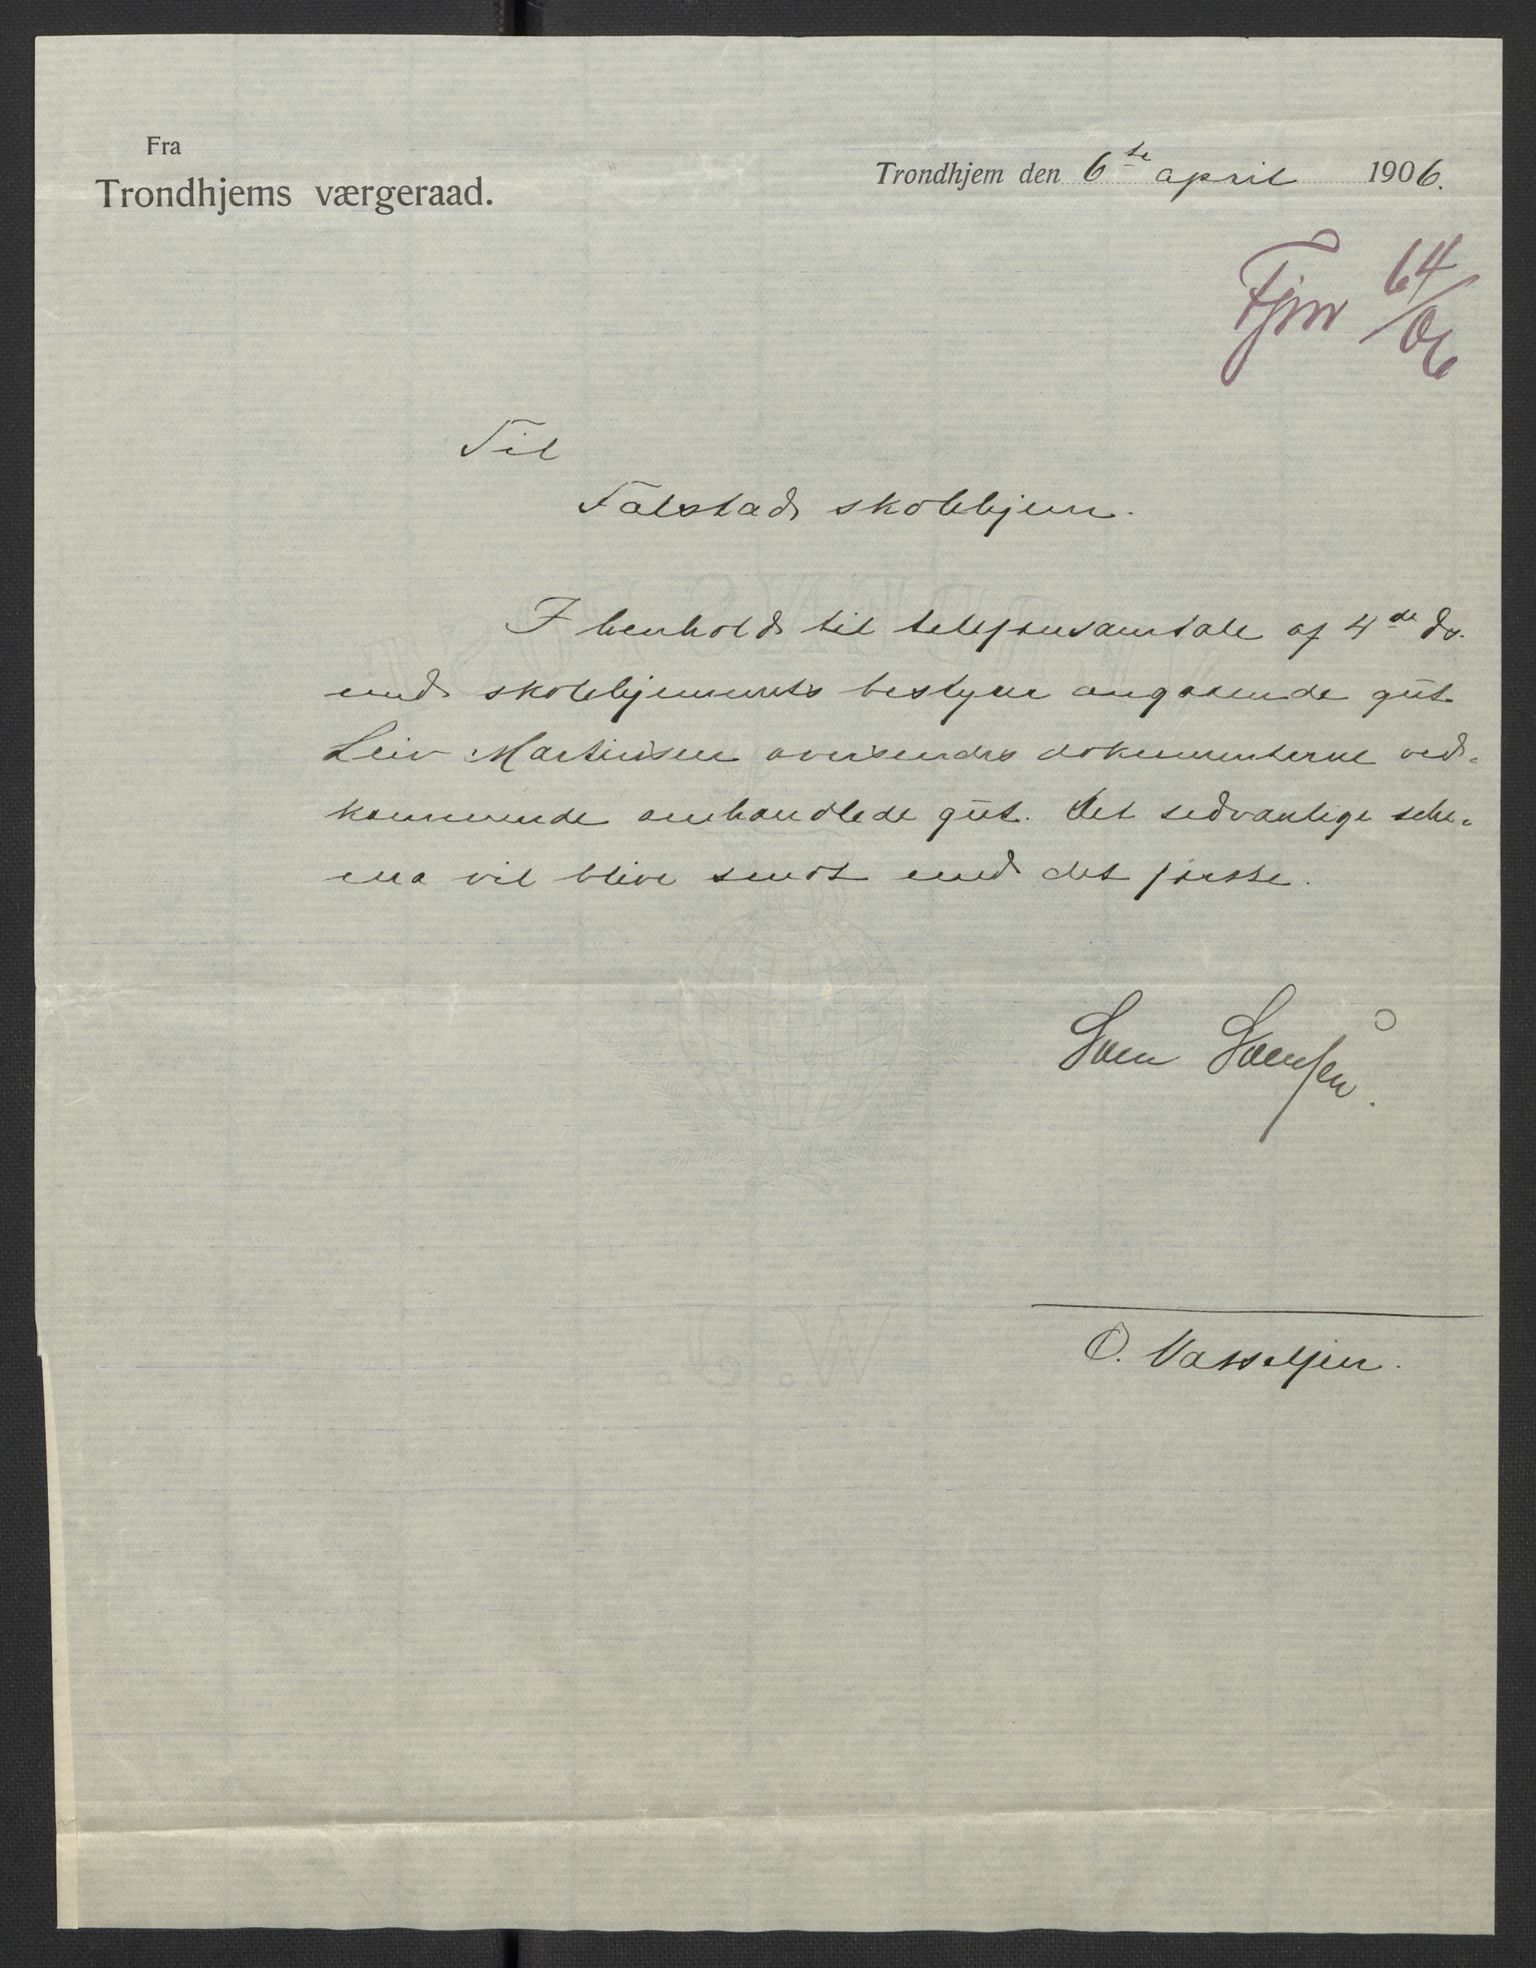 Fra
Trondhjems værgeraad.
Trondhjem den 6te april 1906.
64/06
Til
Falstad skolehjem.
I henhold til telefonsamtale af 4de ds.
med skolehjemmets bestyrer angaaende gut
Leiv Martinsen oversendes dokumenterne ved-
kommende omhandlede gut. Det sedvanlige sche-
ma vil blive sendt med det første.
O. Vasseljen.